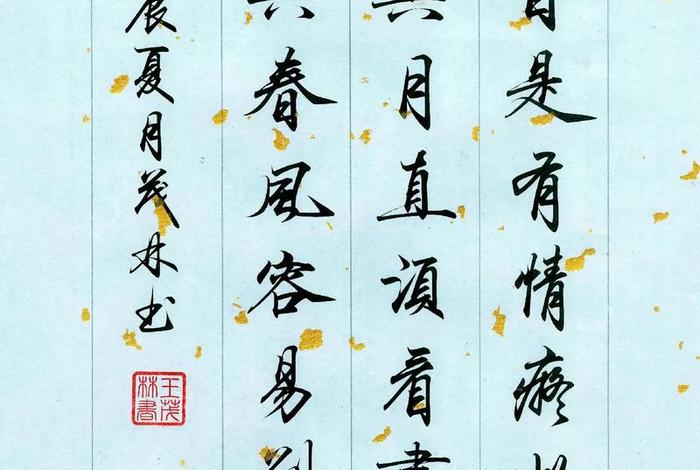 自是有情癡
與月直須看盡
共春風容易別
辰夏月茂林书
王茂林書